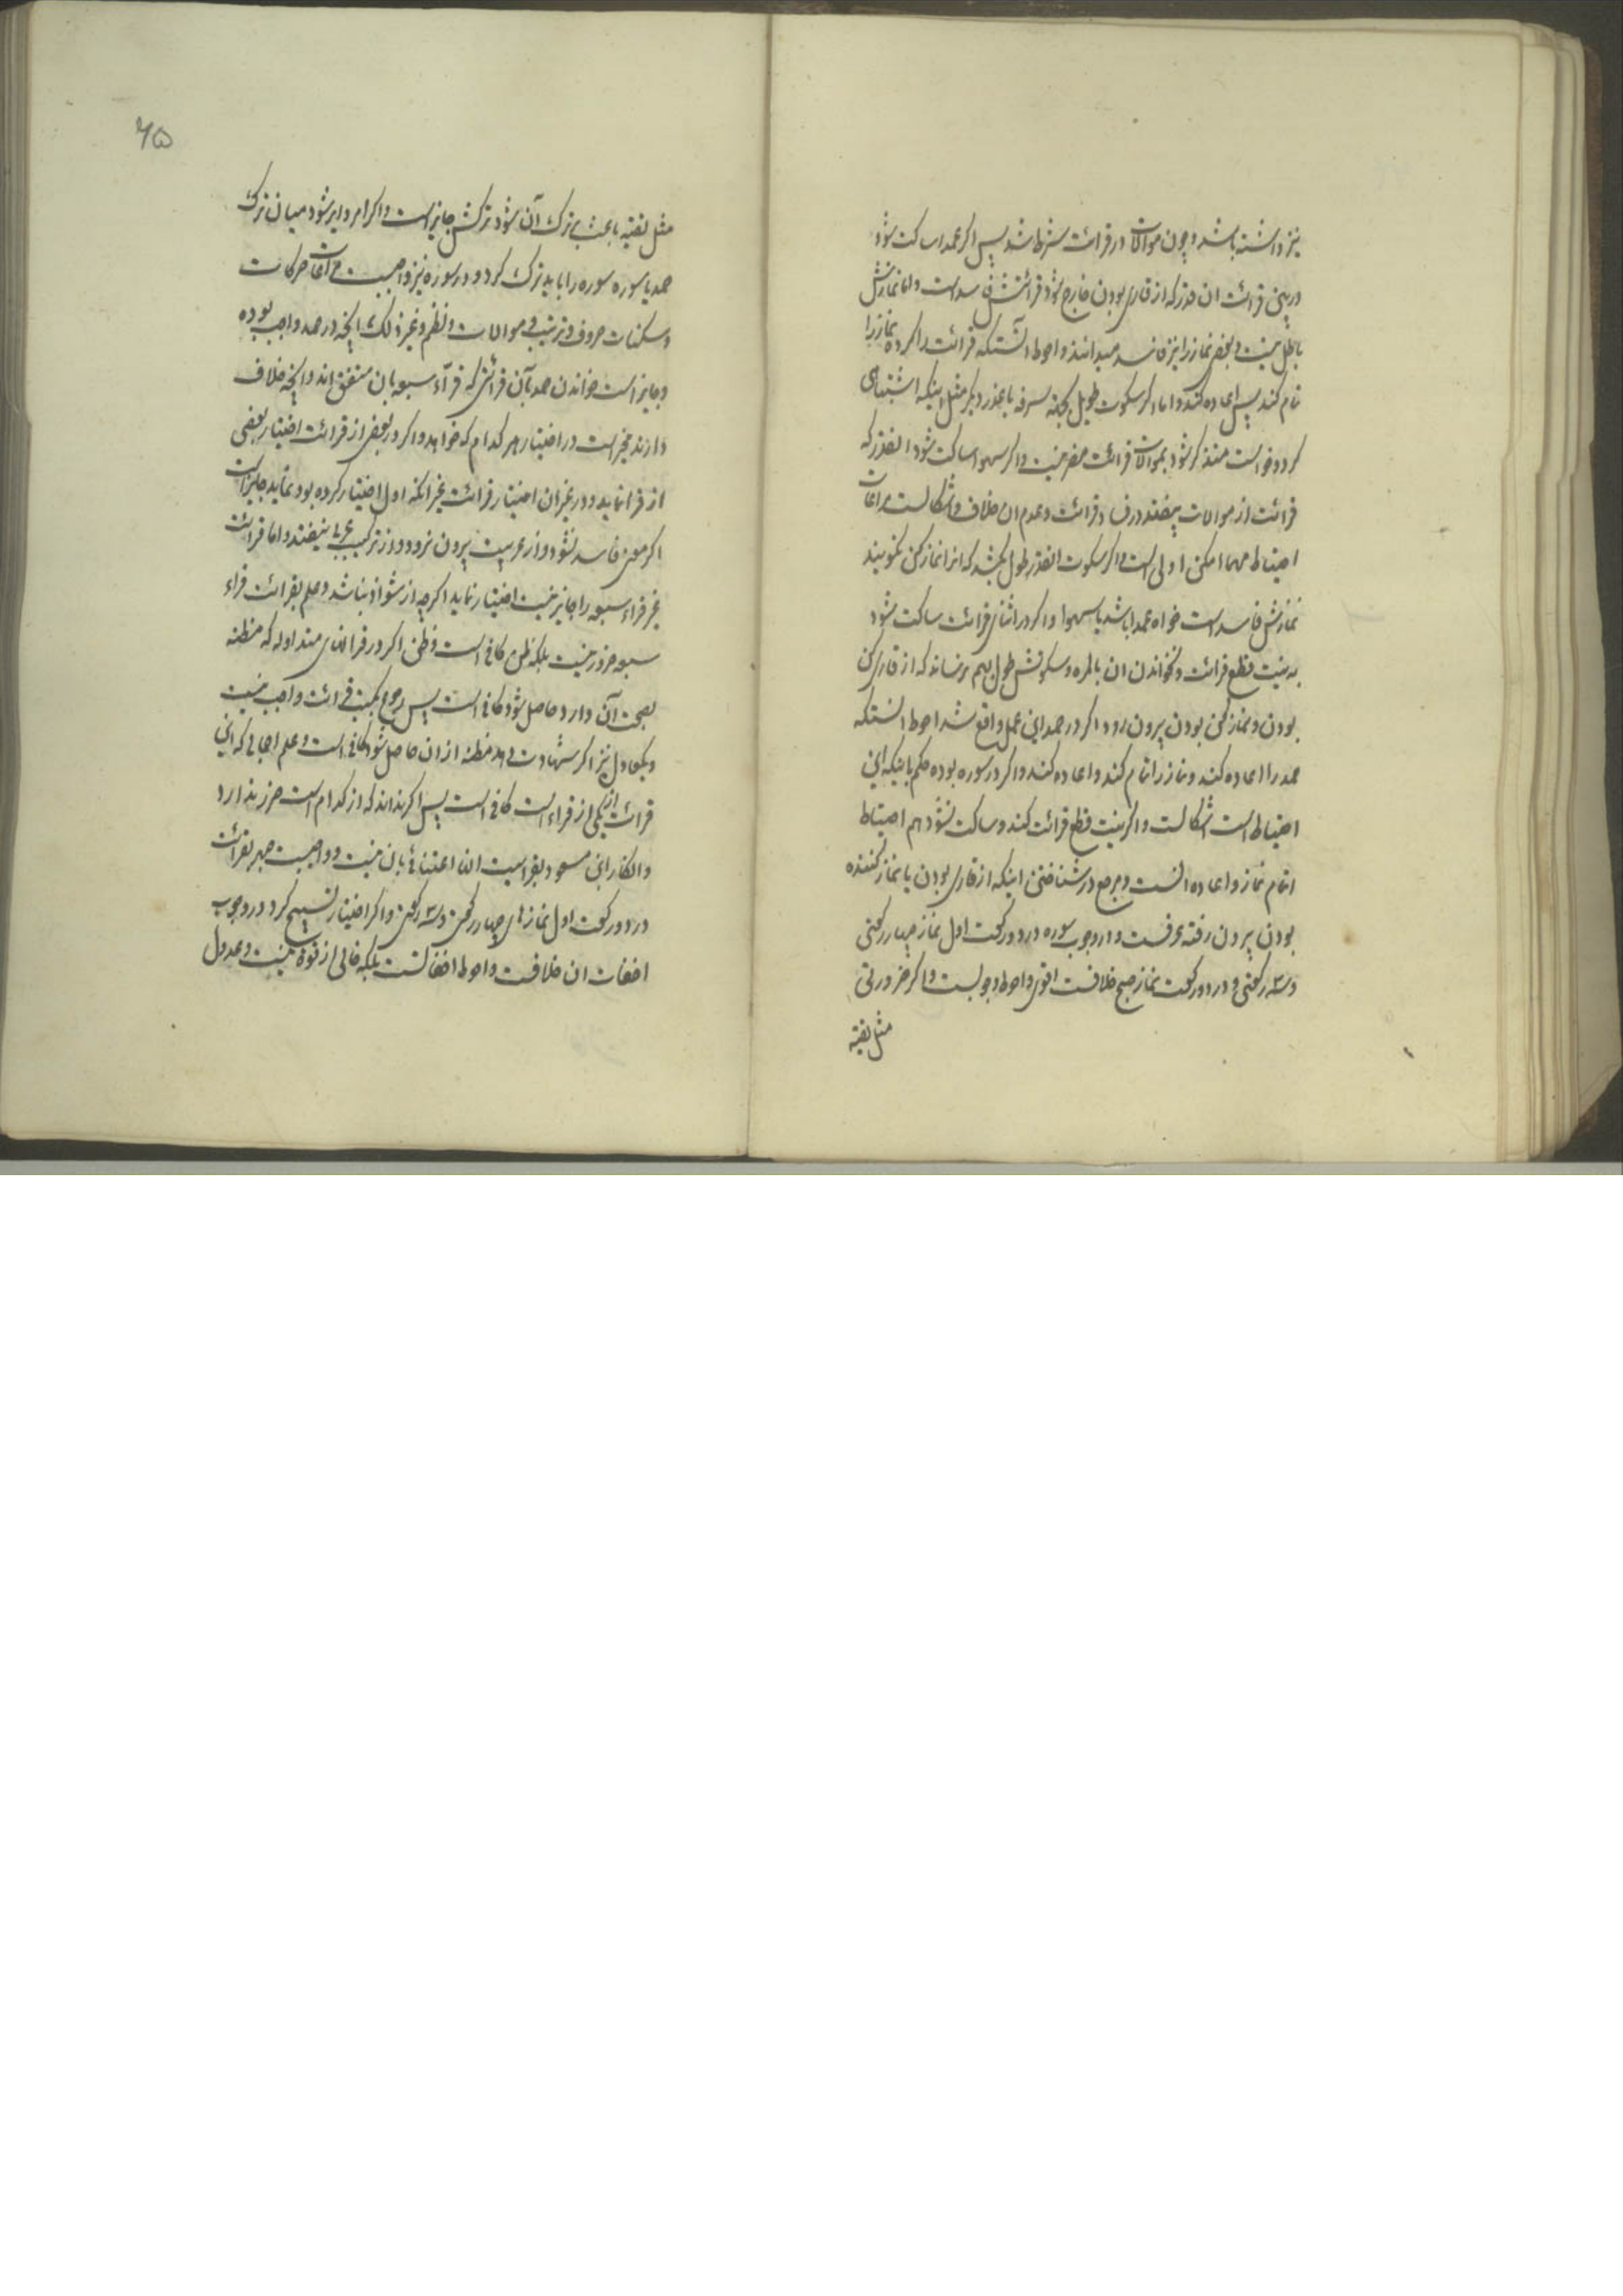 نیز داشته باشد و چون موالات در قرائت شرط شد پس اکر عمدا ساکت شود
در بین قرائت ان قدر که از قاری بودن خارج شود قرائتش فاسد است و اما نمازش
باطل نیست و بعضی نماز را نیز فاسد میدانند و احوط آنستکه قرائت را کرده نماز را
تمام کند پس اعاده کند و اما اکر سکوت طویل بجهة سرفه یا عذر دیکر مثل اینکه اشتباهی
کرد و خواست متذکر شود بموالات قرائت مضر نیست و اکر سهوا ساکت شود انقدر که
قرائت از موالات بیفتد در فساد قرائت و عدم ان خلاف و اشکالست مراعات
احتیاط مهما امکن اولی است و اکر سکوت انقدر طول بکشد که انرا نماز کن نکویند
نمازش فاسد است خواه عمدا باشد یا سهوا و اکر در اثنای قرائت ساکت شود
به نیت قطع قرائت و نخواندن ان بالمره و سکوتش طول بهم رساند که از قاری
بودن و نماز کن بودن بیرون رود اکر در حمد این عمل واقع شد احوط انستکه
حمد را اعاده کند و نماز را تمام کند و اعاده کند و اکر در سوره بوده حکم باینکه این
احتیاط است اشکالست و اکر نیت قطع قرائت کند و ساکت نشود هم احتیاط
اتمام نماز و اعاده انست و مرجع در شناختن اینکه از قاری بودن یا نماز کننده
بودن بیرون رفته عرفست و در وجوب سوره در دو رکعت اول نماز چهار رکعتی
و سه رکعتی و در دو رکعت نماز صبح خلافست اقوی و احوط وجوبست و اکر ضرورتی
مثل تقیه
۶۵
مثل تقیه باعث بترک آن شود ترکش جایز است و اکر امر دایر شود میان ترک
حمد یا سوره سوره را باید ترک کرد و در سوره نیز واجبست مراعات حرکات
و سکنات حروف و ترتیب و موالات و نظم و غیر ذلک انچه در حمد واجب بوده
و جایز است خواندن حمد بآن قرائتی که قرآء سبعه بان متفق اند و انچه خلاف
دارند مخیر است در اختیار هر کدام که خواهد و اکر در بعض از قرائت اختیار بعضی
از قرا نماید و در غیر ان اختیار قرائت غیر انکه اول اختیار کرده بود نماید جایز است
اکر معنی فاسد نشود و از عربیت بیرون نرود و از ترکیب عربی نیفتد و اما قرائت
غیر قراء سبعه را جایز نیست اختیار نماید اکرچه از شواذ نباشد و علم بقرائت قراء
سبعه ضرور نیست بلکه ظن کافی است و ظن اکر در قرانهای متداوله که مظنه
بصحت آن دارد حاصل شود کافی است پس رجوع بکتب قرائت واجب نیست
و یکعادل نیز اکر شهادت دهد مظنه از ان حاصل شود کافی است و علم اجمالی که این
قرائت از یکی از قراء است کافی است پس اکر نداند که از کدام است ضرر ندارد
و انکار ابن مسعود بقرانیت اعتنائی بان نیست و واجبست جهر بقرائت
در دو رکعت اول نمازهای چهار رکعتی و سه رکعتی و اکر اختیار تسبیح کرد در وجوب
اخفات ان خلافست و احوط اخفاتست بلکه خالی از قوة نیست و عدول